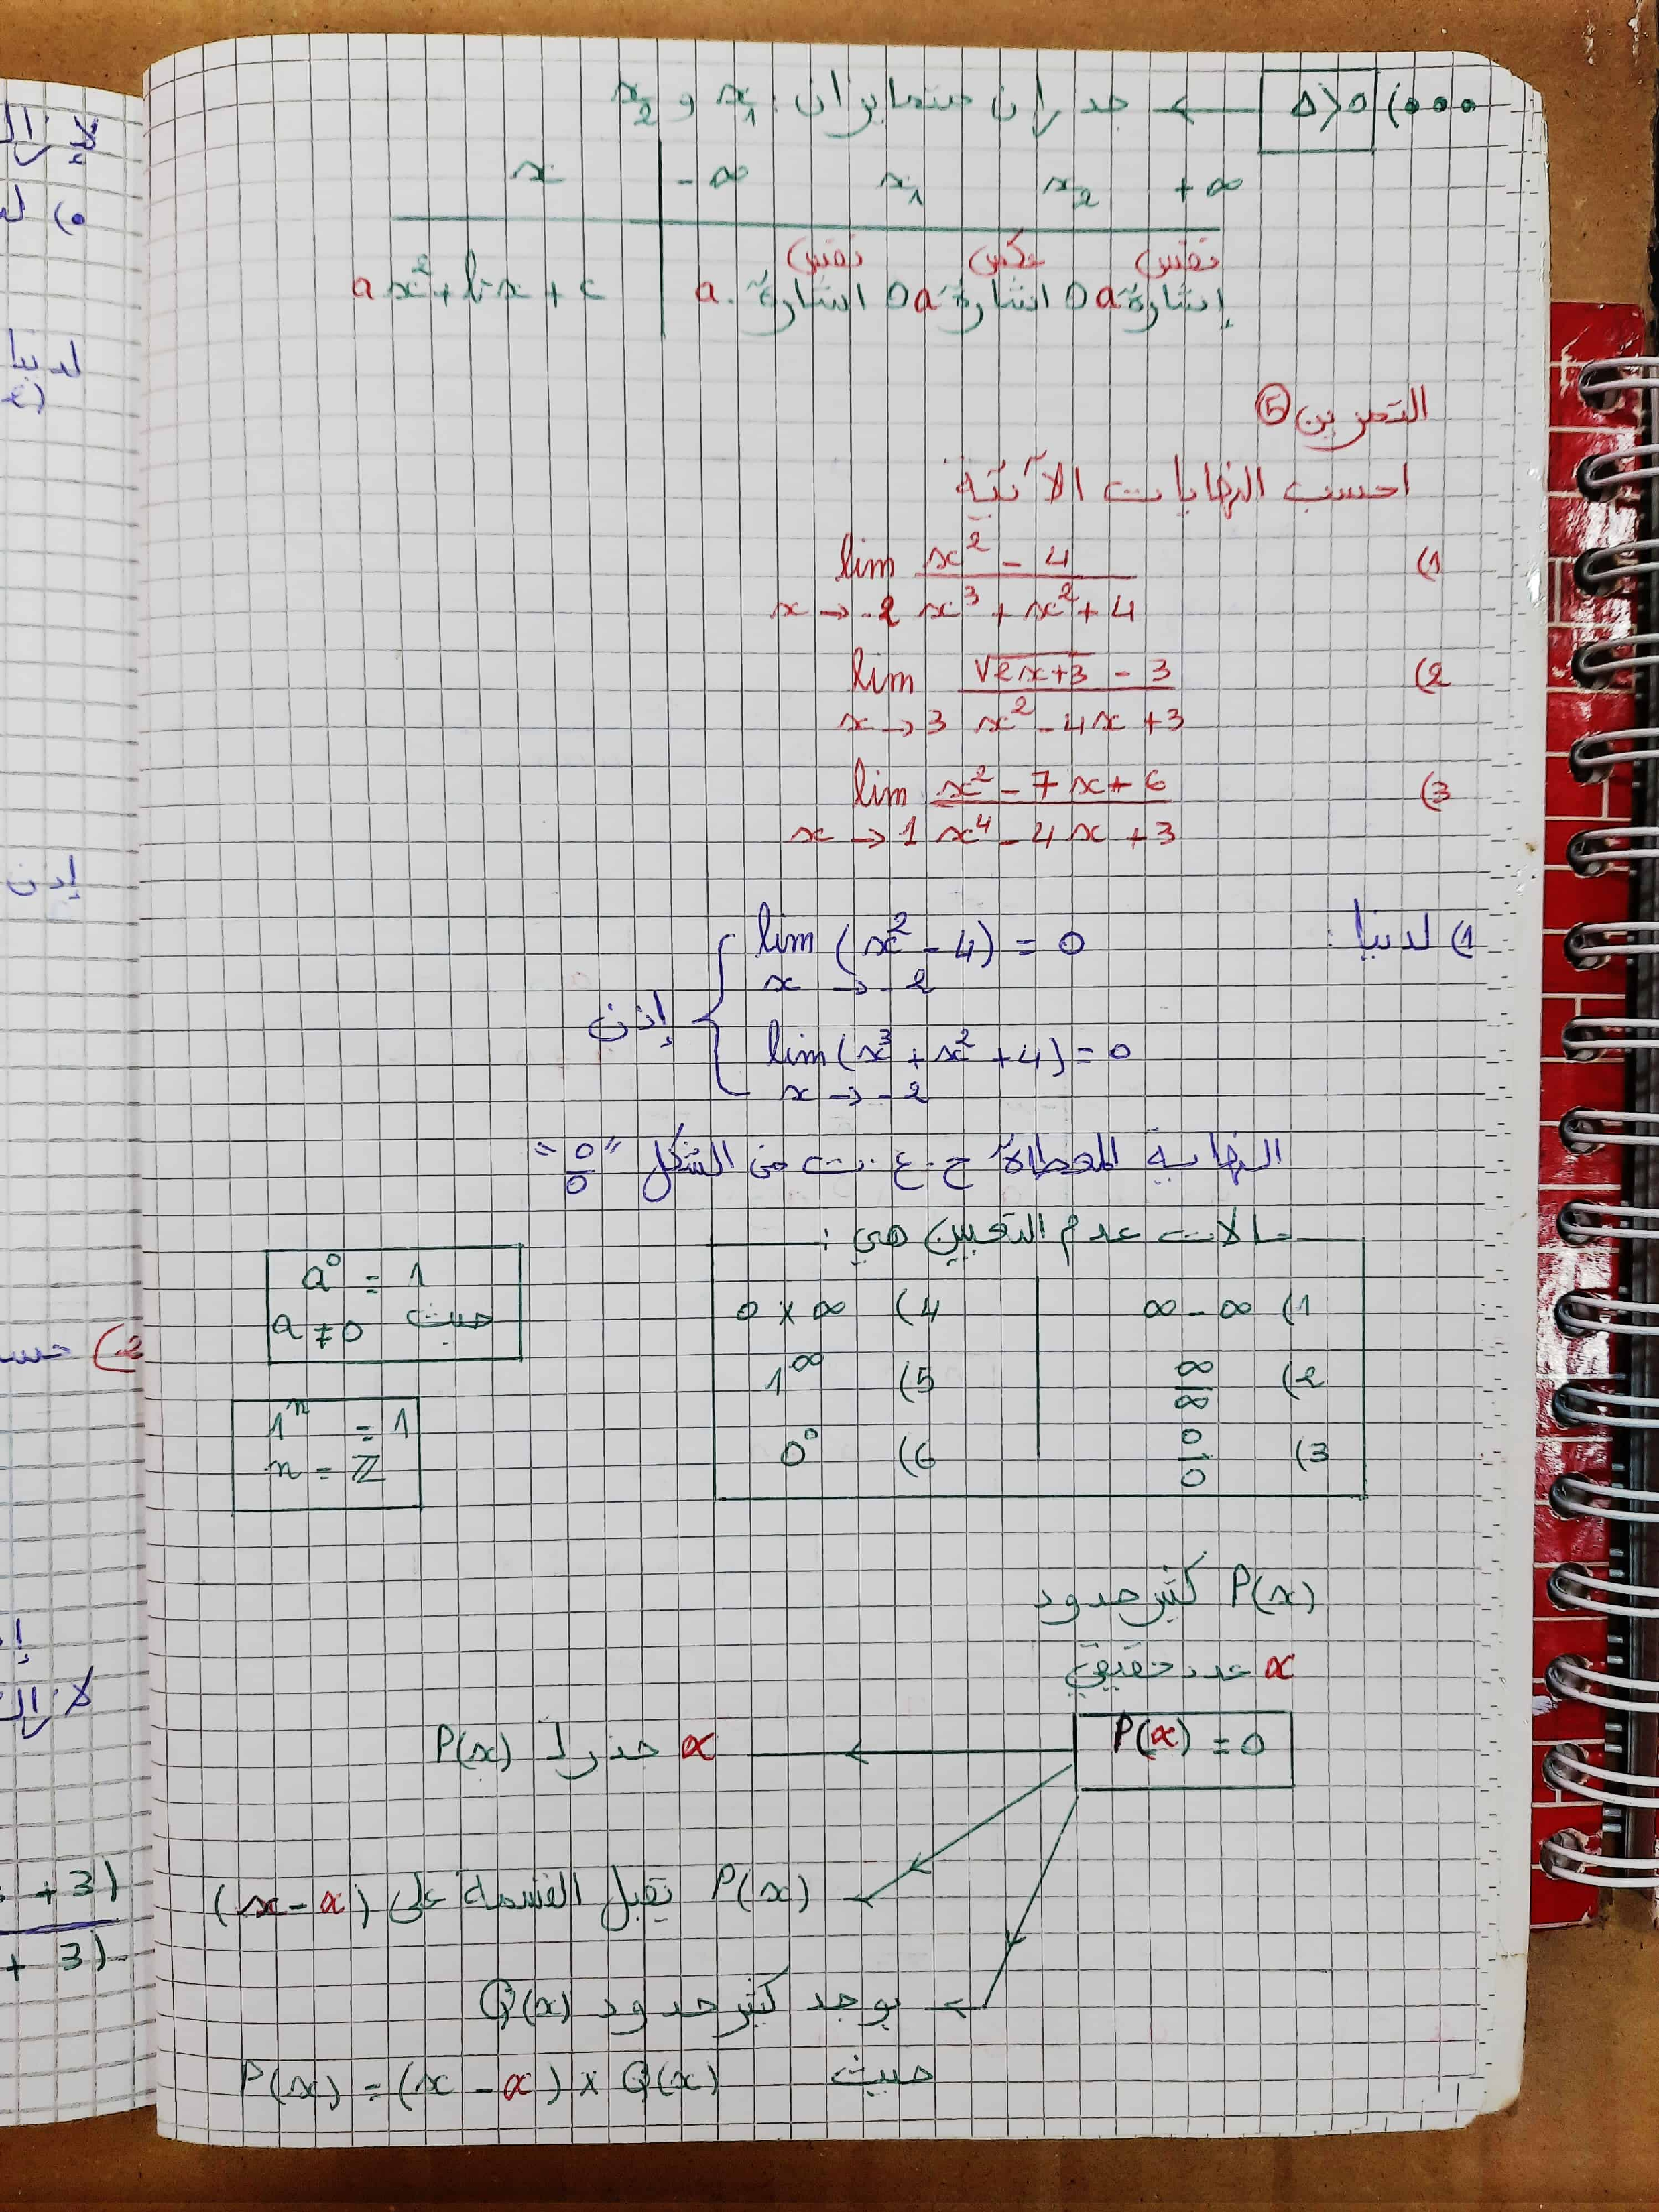 ●●●) Δ>0 ← جدران متمايزان: x₁ و x₂
x | -∞ x₁ x₂ +∞
نفس عكس نفس
ax²+bx+c | إشارة a 0 اشارة a 0 اشارة a.
التمرين ⑤
احسب النهايات الآتية
1) lim x→-2 (x² - 4)/(x³ + x² + 4)
2) lim x→3 (√2x+3 - 3)/(x² - 4x + 3)
3) lim x→1 (x² - 7x + 6)/(x⁴ - 4x + 3)
1) لدينا :
lim (x² - 4) = 0
x → -2
إذن
lim (x³ + x² + 4) = 0
x → -2
النهاية المعطاة ح.ع.ت من الشكل "0/0"
حالات عدم التعيين هي :
1) ∞ - ∞ 4) 0 × ∞
2) ∞/∞ 5) 1^∞
3) 0/0 6) 0⁰
a⁰ = 1
حيث a ≠ 0
1ⁿ = 1
n = ℤ
P(x) كثير حدود
α عدد حقيقي
P(α) = 0 ← α جذر لـ P(x)
P(x) تقبل القسمة على (x - α)
يوجد كثير حدود Q(x)
حيث P(x) = (x - α) × Q(x)
لدينا
إذن
+ 3)
+ 3)